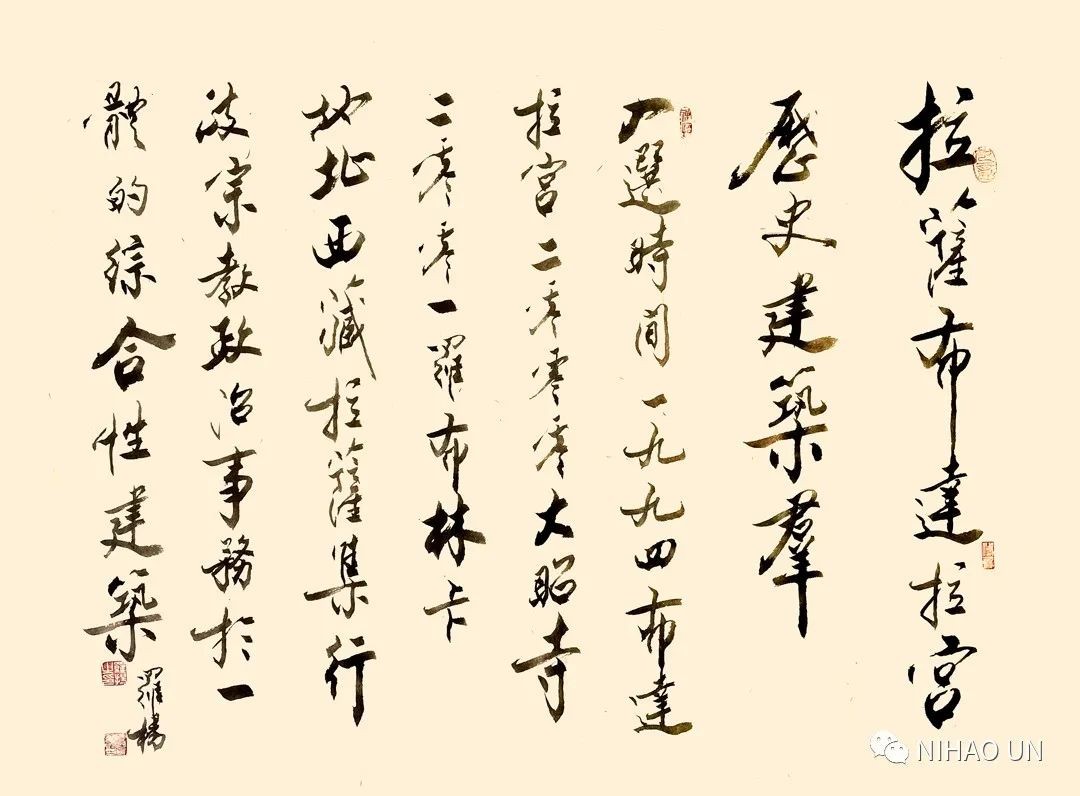 拉薩布達拉宮
歷史建築羣
入選時間一九九四布達
拉宮二零零零大昭寺
二零零一羅布林卡
地址西藏拉薩集行
政宗教政治事務於一
體的綜合性建築
羅楊
NIHAO UN